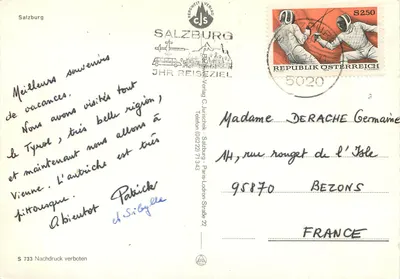 Salzburg
Meilleurs souvenirs
de vacances.
Nous avons visités tout
le Tyrol, très belle région,
et maintenant nous allons à
Vienne. L'autriche est très
pittoresque.
A bientot Patrick
et Sibylle
S 733 Nachdruck verboten
CJS
SALZBURG
IHR REISEZIEL
5020
S 2.50
REPUBLIK ÖSTERREICH
Verlag C. Jurischek · Salzburg · Paris-Lodron-Straße
Madame DERACHE Germaine
14, rue rouget de l'Isle
95870 BEZONS
FRANCE